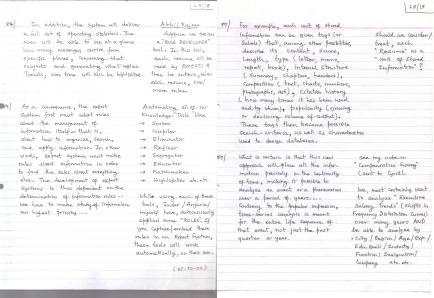 In addition, the system will deliver
a full set of operating statistics. The
user will be able to see at a glance
how many messages came from
specific places, concerning what
subjects and generating what replies
Trends, over time will also be highlighted.
Abhi / Rajeev
Suppose we design
a "RULE DEVELOPER"
tool. In this tool,
each resume will be
read by EXPERTS &
then the authors, enter
each resume, one/
more rules.
As a consequence, the expert
system first must adopt rules
about the management of
information itself; that is,
about how to organize, search,
and apply information. In other
words, expert system must make
rules about information in order
to find the rules about everything
else. The development of expert
systems is thus dependent on the
determination of information rules —
We have to make study of information
our highest priority ....
Automating all of our
Knowledge Tools like
→ Sorter
→ Compiler
→ Eliminator
→ Refiner
→ Segregator
→ Educator
→ Matchmaker
→ Highlighter etc. etc
While using each of these
tools, Inder / Rajeev /
myself have, subconsciously
applied some "RULES". If
you capture/embed these
rules in an Expert System,
these tools will work
automatically, on their own..
L5/18
For example, each unit of stored
information can be given tags (or
labels) that, among other possibilities,
describe its content, source,
Length, type (letter, memo,
report, book), internal structure
(Summary, chapters, headers),
Composition (text, charts, numbers,
photographs, art), Citation history,
(how many times it has been used
and by whom), popularity (growing
or declining volume of output).
These tags then become possible
search-criteria, as well as characteristics
used to design databases.
Should we consider/
treat, each
"Resume" as a
"Unit of Stored
Information"?
What is certain is that this new
approach will place all the infor-
mation precisely in the continuity
of time, making it possible to
analyze an event or a phenomenon
over a period of years....
Contrary to the popular impression,
time-series analysis is meant
for the entire life sequence of
that event, not just the past
quarter or year.
See my note on
"Compensation Survey"
(sent to Cyril).
we, most certainly want
to analyze "Executive
Salary Trends" (Shifts in
Frequency Distribution Curves)
over many years AND
be able to analyze by
→ City / Region / Age / Exp. /
Edu. Quali / Industry /
Function / Designation /
Company etc. etc.